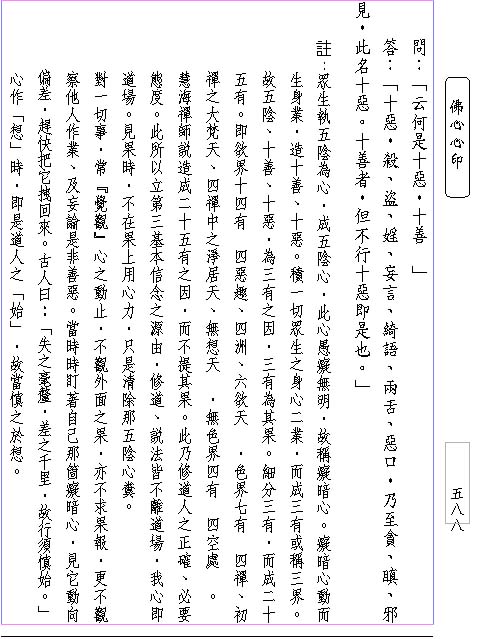 佛心心印
五八八
問：「云何是十惡・十善　」
答：「十惡・殺、盜、婬、妄言、綺語、兩舌、惡口，乃至貪、瞋、邪
見，此名十惡。十善者，但不行十惡即是也。」
註：眾生執五陰為心，成五陰心，此心愚癡無明，故稱癡暗心。癡暗心動而
生身業，造十善、十惡。積一切眾生之身心二業，而成三有或稱三界。
故五陰、十善、十惡，為三有之因，三有為其果。細分三有，而成二十
五有。即欲界十四有　四惡趣、四洲、六欲天　，色界七有　四禪、初
禪之大梵天、四禪中之淨居天、無想天　，無色界四有　四空處　。
慧海禪師說造成二十五有之因，而不提其果。此乃修道人之正確、必要
態度。此所以立第三基本信念之源由，修道、說法皆不離道場，我心即
道場。見果時，不在果上用心力，只是清除那五陰心糞。
對一切事，常『覺觀』心之動止，不觀外面之果，亦不求果報，更不觀
察他人作業、及妄論是非善惡。當時時盯著自己那箇癡暗心，見它動向
偏差，趕快把它拽回來。古人曰：「失之毫釐，差之千里，故行須慎始。」
心作「想」時，即是道人之「始」，故當慎之於想。